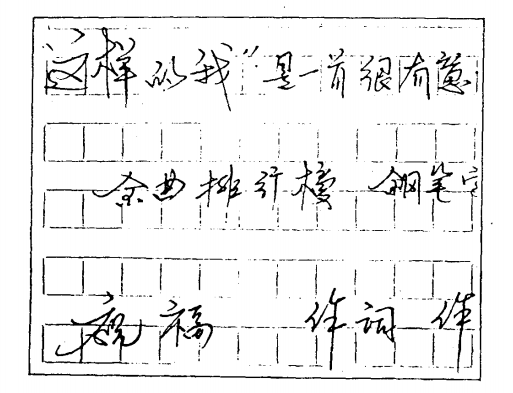 “这样的我”是一首很有意
金曲排行榜 钢笔
祝福 作词 作